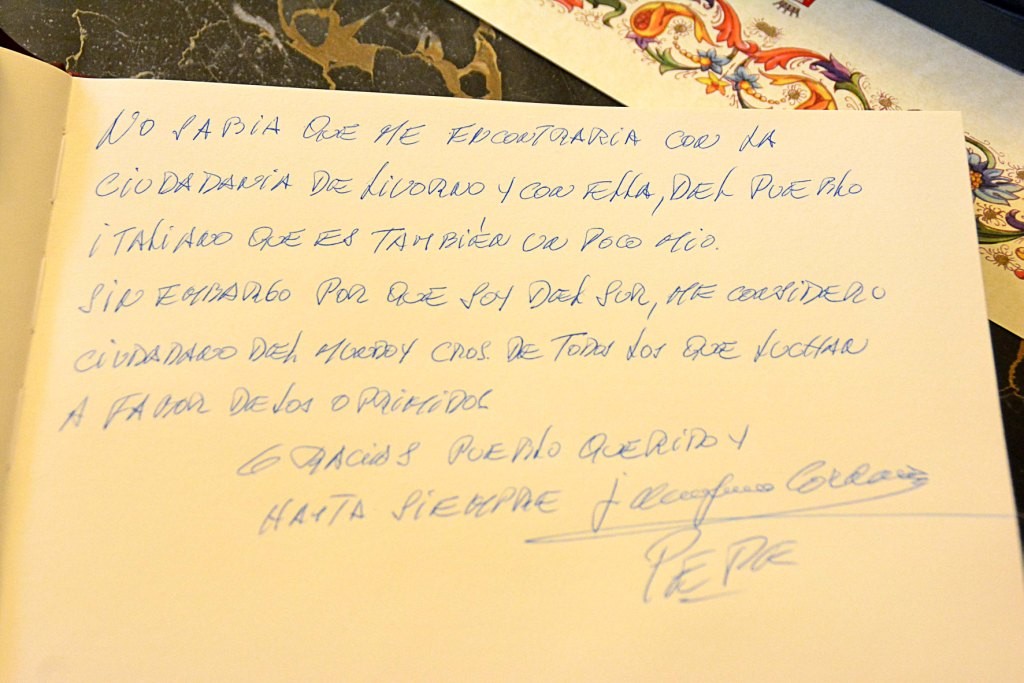 NO SABIA QUE ME ENCONTRARIA CON LA
CIUDADANIA DE LIVORNO Y CON ELLA, DEL PUEBLO
ITALIANO QUE ES TAMBIÉN UN POCO MIO.
SIN EMBARGO POR QUE SOY DEL SUR, ME CONSIDERO
CIUDADANO DEL MUNDO Y CROS. DE TODOS LOS QUE LUCHAN
A FABOR DE LOS OPRIMIDOS
GRACIAS PUEBLO QUERIDO Y
HASTA SIEMPRE
PEPE